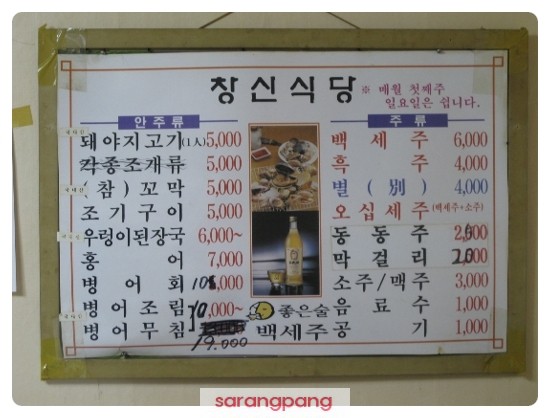 창신식당
※ 매월 첫째주
일요일은 쉽니다.
안 주 류
돼야지고기(1人) 5,000
각종조개류 5,000
(참)꼬막 5,000
조기구이 5,000
우렁이된장국 6,000~
홍어 7,000
병어회 ,000
병어조림 10,000~
병어무침
19.000
좋은술
백세주
주 류
백세주 6,000
흑주 4,000
별(別) 4,000
오십세주(백세주+소주)
동동주
막걸리
소주/맥주 3,000
음료수 1,000
공기 1,000
sarangpang